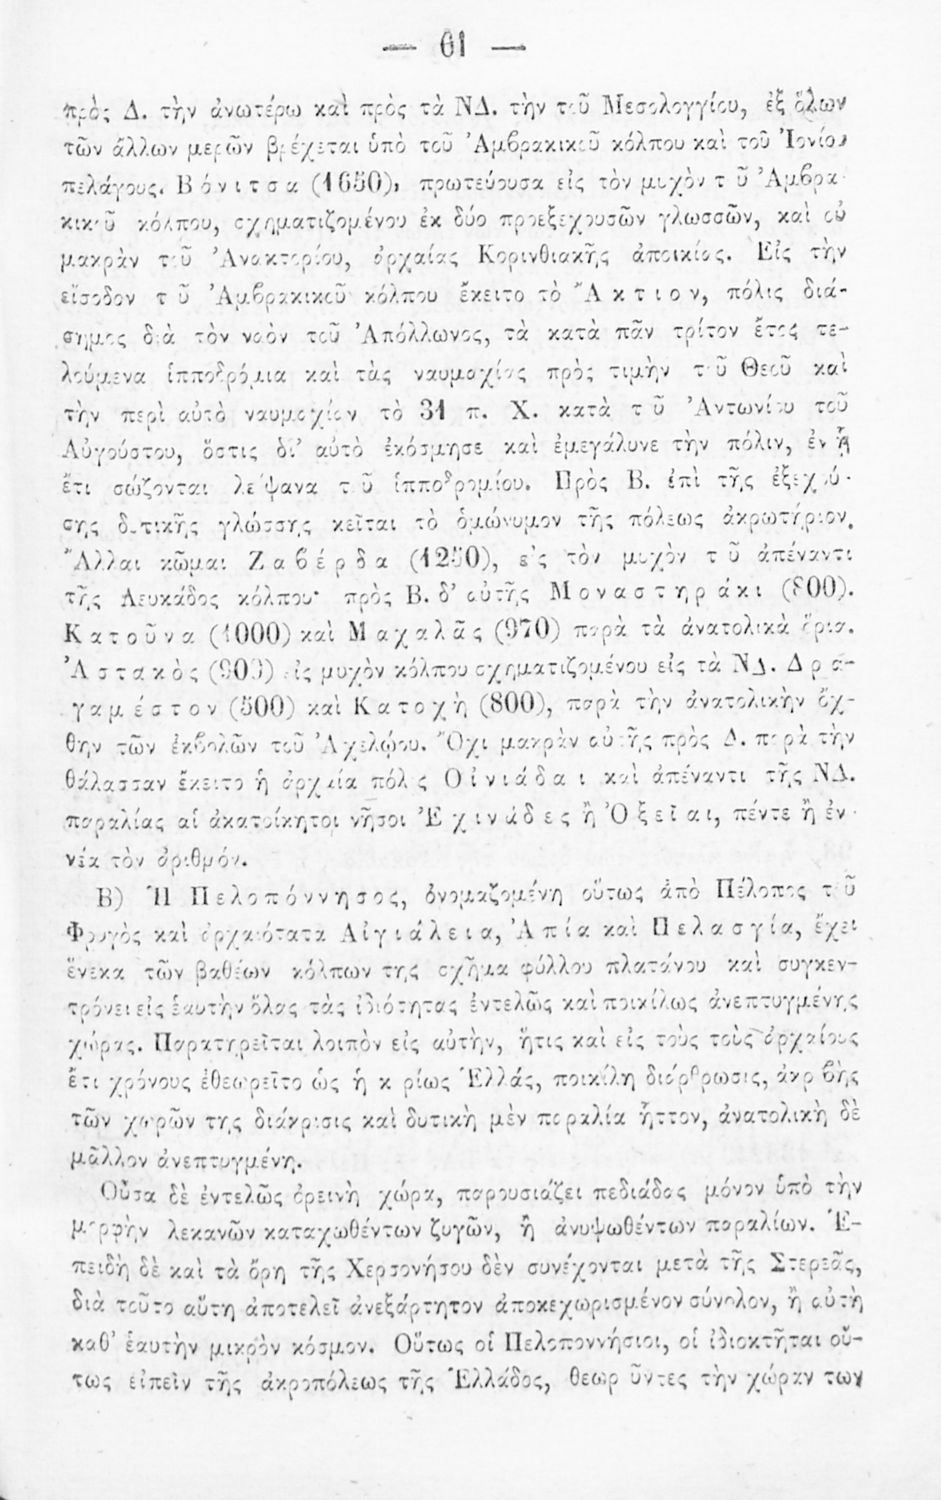 — 61 —
πρὸς Δ. τὴν ἀνωτέρω καὶ πρὸς τὰ ΝΔ. τὴν τοῦ Μεσολογγίου, ἐξ ὅλων
τῶν ἄλλων μερῶν βρέχεται ὑπὸ τοῦ Ἀμβρακικοῦ κόλπου καὶ τοῦ Ἰονίου
πελάγους. Βόνιτσα (1650), πρωτεύουσα εἰς τὸν μυχὸν τοῦ Ἀμβρα-
κικοῦ κόλπου, σχηματιζομένου ἐκ δύο προεξεχουσῶν γλωσσῶν, καὶ οὐ
μακρὰν τοῦ Ἀνακτορίου, ἀρχαίας Κορινθιακῆς ἀποικίας. Εἰς τὴν
εἴσοδον τοῦ Ἀμβρακικοῦ κόλπου ἔκειτο τὸ Ἄκτιον, πόλις διά-
σημος διὰ τὸν ναὸν τοῦ Ἀπόλλωνος, τὰ κατὰ πᾶν τρίτον ἔτος τε-
λούμενα ἱπποδρόμια καὶ τὰς ναυμαχίας πρὸς τιμὴν τοῦ Θεοῦ καὶ
τὴν περὶ αὐτὸ ναυμαχίαν τὸ 31 π. Χ. κατὰ τοῦ Ἀντωνίου τοῦ
Αὐγούστου, ὅστις δι' αὐτὸ ἐκόσμησε καὶ ἐμεγάλυνε τὴν πόλιν, ἐν ᾗ
ἔτι σώζονται λείψανα τοῦ ἱπποδρομίου. Πρὸς Β. ἐπὶ τῆς ἐξεχού-
σης δυτικῆς γλώσσης κεῖται τὸ ὁμώνυμον τῆς πόλεως ἀκρωτήριον.
Ἄλλαι κῶμαι Ζαβέρδα (1250), εἰς τὸν μυχὸν τοῦ ἀπέναντι
τῆς Λευκάδος κόλπου· πρὸς Β. δ' αὐτῆς Μοναστηράκι (800).
Κατοῦνα (1000) καὶ Μαχαλᾶς (970) παρὰ τὰ ἀνατολικὰ ὅρια.
Ἀστακὸς (900) εἰς μυχὸν κόλπου σχηματιζομένου εἰς τὰ ΝΔ. Δρα-
γαμέστον (500) καὶ Κατοχὴ (800), παρὰ τὴν ἀνατολικὴν ὄχ-
θην τῶν ἐκβολῶν τοῦ Ἀχελῴου. Ὄχι μακρὰν αὐτῆς πρὸς Δ. παρὰ τὴν
θάλασσαν ἔκειτο ἡ ἀρχαία πόλις Οἰνιάδαι καὶ ἀπέναντι τῆς ΝΔ.
παραλίας αἱ ἀκατοίκητοι νῆσοι Ἐχινάδες ἢ Ὀξεῖαι, πέντε ἢ ἐν-
νέα τὸν ἀριθμόν.
Β) Ἡ Πελοπόννησος, ὀνομαζομένη οὕτως ἀπὸ Πέλοπος τοῦ
Φρυγὸς καὶ ἀρχαιότατα Αἰγιάλεια, Ἀπία καὶ Πελασγία, ἔχει
ἕνεκα τῶν βαθέων κόλπων της σχῆμα φύλλου πλατάνου καὶ συγκεν-
τρόνει εἰς ἑαυτὴν ὅλας τὰς ἰδιότητας ἐντελῶς καὶ ποικίλως ἀνεπτυγμένης
χώρας. Παρατηρεῖται λοιπὸν εἰς αὐτήν, ἥτις καὶ εἰς τοὺς τοὺς ἀρχαίους
ἔτι χρόνους ἐθεωρεῖτο ὡς ἡ κυρίως Ἑλλάς, ποικίλη διάρθρωσις, ἀκριβὴς
τῶν χωρῶν της διάκρισις καὶ δυτικὴ μὲν παραλία ἧττον, ἀνατολικὴ δὲ
μᾶλλον ἀνεπτυγμένη.
Οὖσα δὲ ἐντελῶς ὀρεινὴ χώρα, παρουσιάζει πεδιάδας μόνον ὑπὸ τὴν
μορφὴν λεκανῶν καταχωθέντων ζυγῶν, ἢ ἀνυψωθέντων παραλίων. Ἐ-
πειδὴ δὲ καὶ τὰ ὄρη τῆς Χερσονήσου δὲν συνέχονται μετὰ τῆς Στερεᾶς,
διὰ τοῦτο αὕτη ἀποτελεῖ ἀνεξάρτητον ἀποκεχωρισμένον σύνολον, ἢ αὐτὴ
καθ' ἑαυτὴν μικρὸν κόσμον. Οὕτως οἱ Πελοποννήσιοι, οἱ ἰδιοκτῆται οὕ-
τως εἰπεῖν τῆς ἀκροπόλεως τῆς Ἑλλάδος, θεωροῦντες τὴν χώραν των